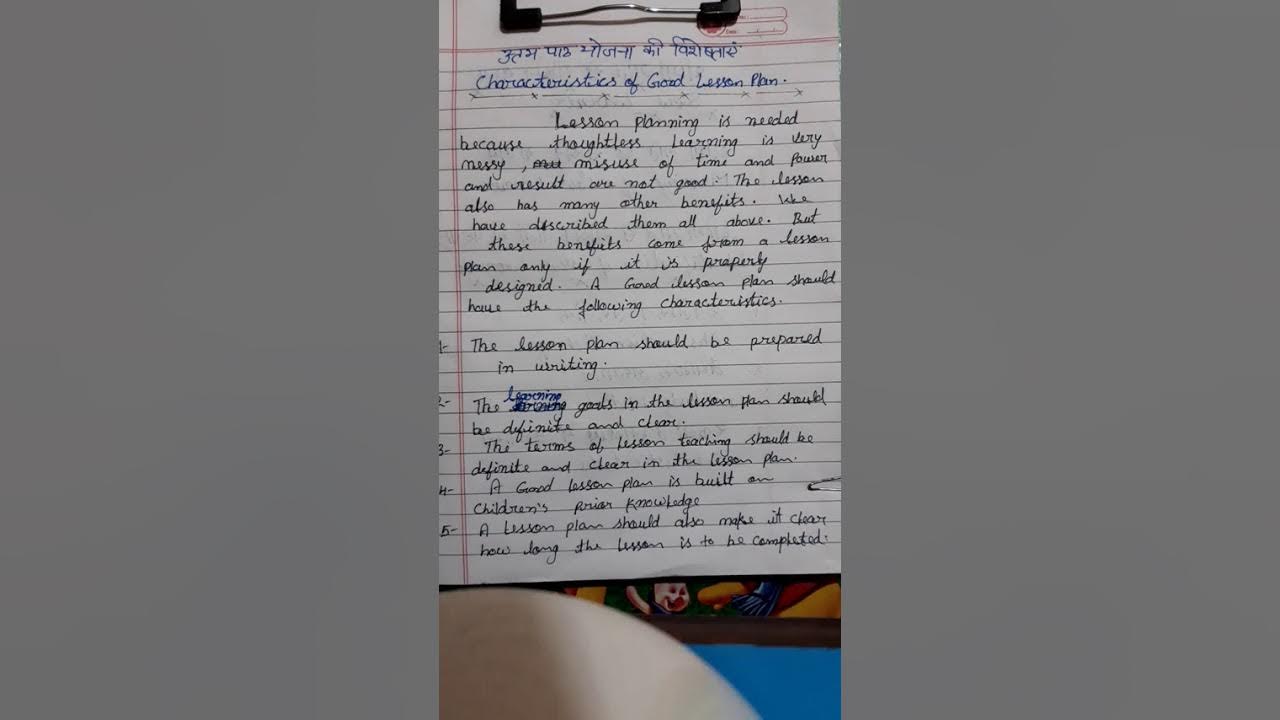 उत्तम पाठ योजना की विशेषताएं
Characteristics of Good Lesson Plan.
Lesson planning is needed
because thoughtless learning is very
messy, misuse of time and Power
and result are not good. The lesson
also has many other benefits. We
have described them all above. But
these benefits come from a lesson
plan only if it is properly
designed. A Good lesson plan should
have the following characteristics.
1- The lesson plan should be prepared
in writing.
2- The learning goals in the lesson plan should
be definite and clear.
3- The terms of lesson teaching should be
definite and clear in the lesson plan.
4- A Good lesson plan is built on
Children's prior knowledge
5- A Lesson plan should also make it clear
how long the lesson is to be completed.